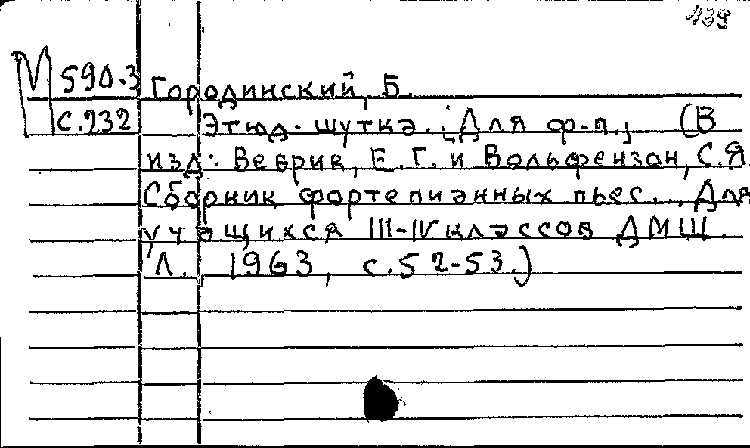 439
М 590.3 Городинский, Б.
с.232 Этюд-шутка. [Для ф-п.] (В
изд: Веврик, Е.Г. и Вольфензон, С.Я.
Сборник фортепианных пьес... Для
учащихся III-IV классов ДМШ.
Л., 1963, с.52-53.)